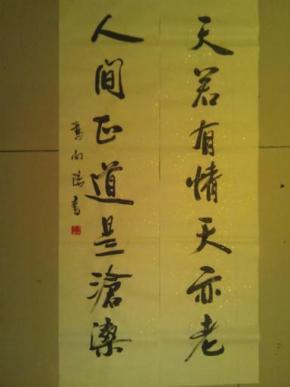 天若有情天亦老
人间正道是滄桑